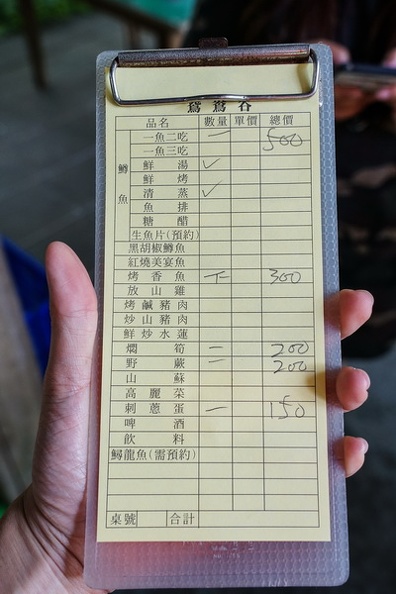 鴛鴦谷
品名 數量 單價 總價
鱒魚
一魚二吃 一 500
一魚三吃
鮮湯 ✓
鮮烤
清蒸 ✓
魚排
糖醋
生魚片(預約)
黑胡椒鱒魚
紅燒美宴魚
烤香魚 下 300
放山雞
烤鹹豬肉
炒山豬肉
鮮炒水蓮
燜筍 二 200
野蕨 二 200
山蘇
高麗菜
刺蔥蛋 一 150
啤酒
飲料
鱘龍魚(需預約)
桌號 合計